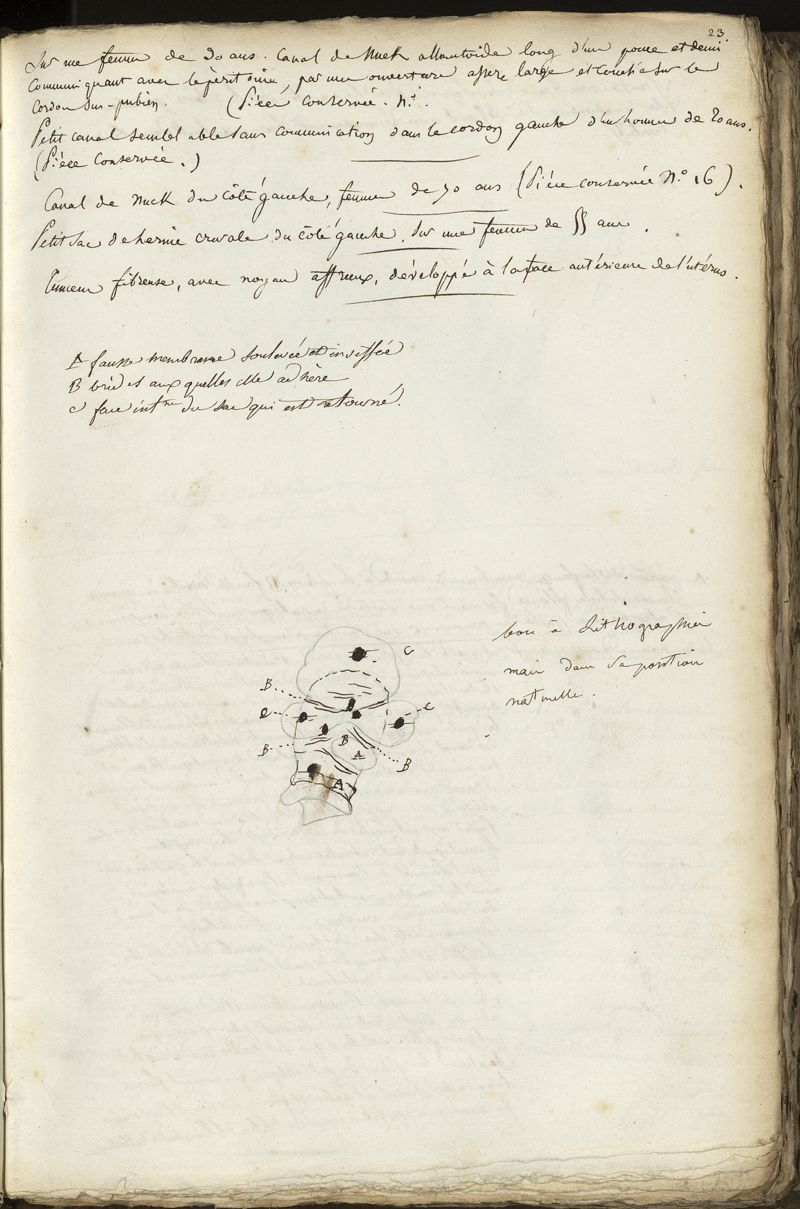 23
Sur une femme de 30 ans. Canal de Nuck allantoïde long d'un pouce et demi
communiquant avec le péritoine, par une ouverture assez large et couché sur le
cordon sus-pubien. (Pièce conservée. N.°
Petit canal semblable sans communication dans le cordon gauche d'un homme de 20 ans.
(Pièce conservée.)
Canal de Nuck du côté gauche, femme de 70 ans (Pièce conservée N.° 16).
Petit sac de hernie crurale du côté gauche, sur une femme de 55 ans.
Tumeur fibreuse, avec noyau osseux, développée à la face antérieure de l'utérus.
A fausse membrane soulevée et insufflée
B brides auxquelles elle adhère
C face int.re du sac qui est retourné.
bon à Lithographier
mais dans sa position
naturelle.
C
B
C
B
B
A
B
A